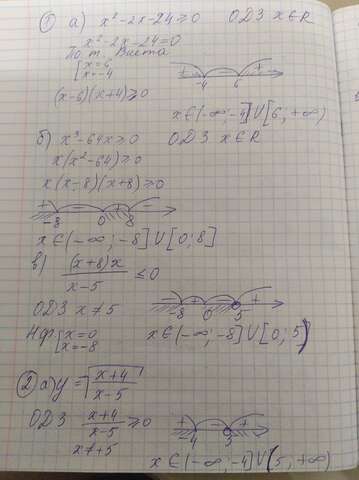 ① а) x² - 2x - 24 ≥ 0 ОДЗ x ∈ R
x² - 2x - 24 = 0
По т. Виета
[x = 6
[x = -4
+ - +
-4 6
(x-6)(x+4) ≥ 0
x ∈ (-∞; -4] ∪ [6; +∞)
б) x³ - 64x ≥ 0 ОДЗ x ∈ R
x(x² - 64) ≥ 0
x(x-8)(x+8) ≥ 0
-8 0 8
x ∈ (-∞; -8] ∪ [0; 8]
в) (x+8)x / x-5 ≤ 0
ОДЗ x ≠ 5
-8 0 5
НФ. [x = 0
[x = -8
x ∈ (-∞; -8] ∪ [0; 5)
② а) y = √(x+4 / x-5)
ОДЗ x+4 / x-5 ≥ 0
x ≠ +5
x ∈ (-∞; -4] ∪ (5; +∞)